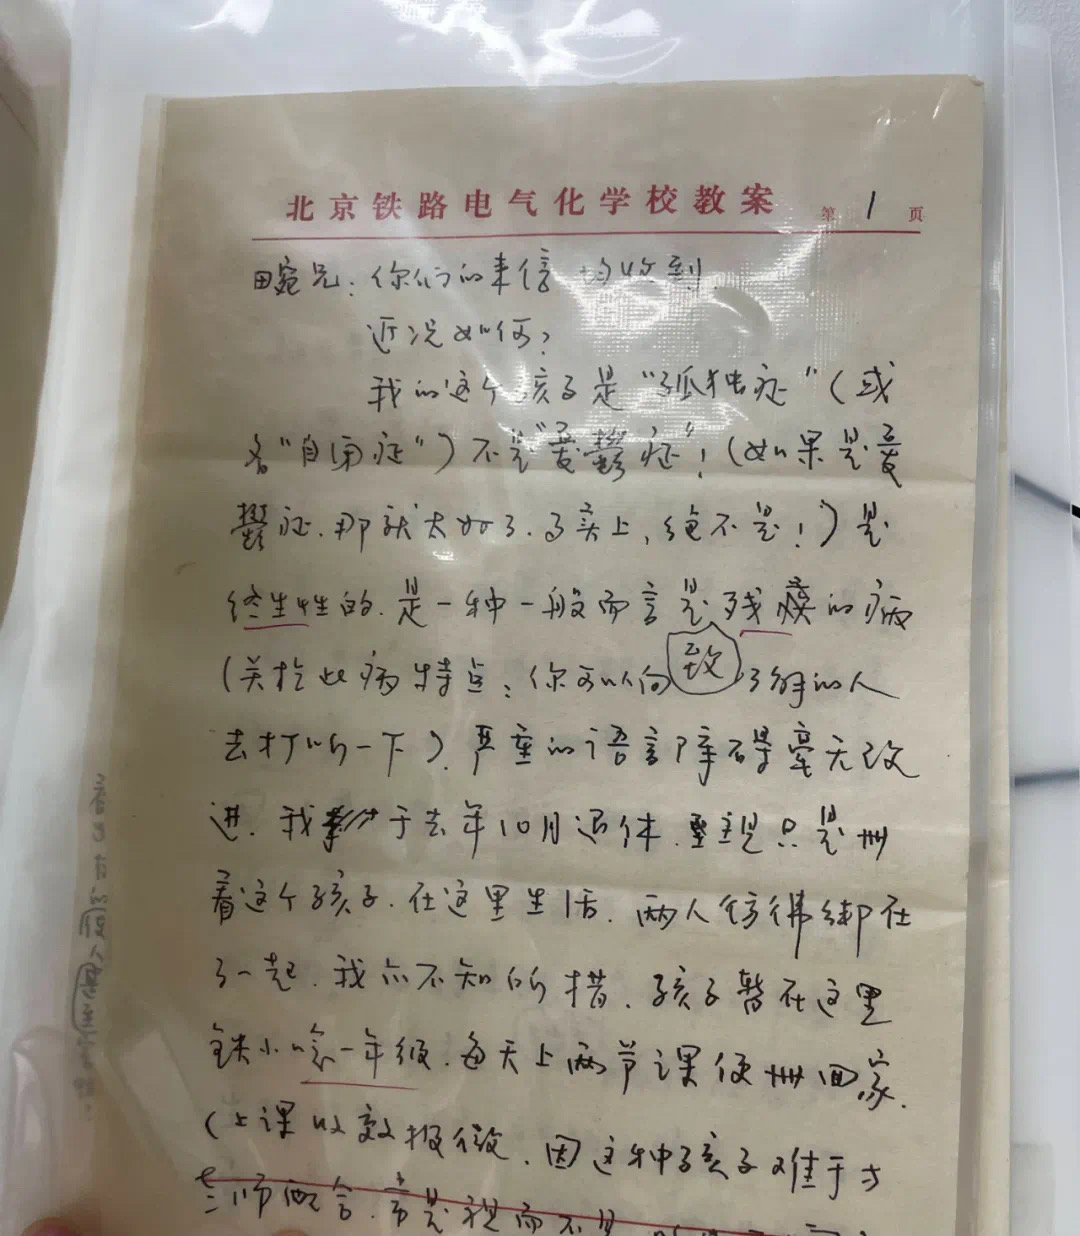 北京铁路电气化学校教案 第 1 页
田宛兄：你们的来信均收到.
近况如何？
我的这个孩子是“孤独症”（或
名“自闭症”）不是“忧鬱症”！（如果是忧
鬱症.那就太好了.事实上，绝不是！）是
终生性的.是一种一般而言是残废的病
（关於此病特点：你可以向 了解的人
去打听一下）.严重的语言障碍毫无改
进.我 于去年10月退休. 现只是
看这个孩子.在这里生活.两人彷彿绑在
了一起.我亦不知所措.孩子暂在这里
铁小唸一年级.每天上两节课便 回家.
（上课收效极微.因这种孩子难于与
老师配合.常是视而不见